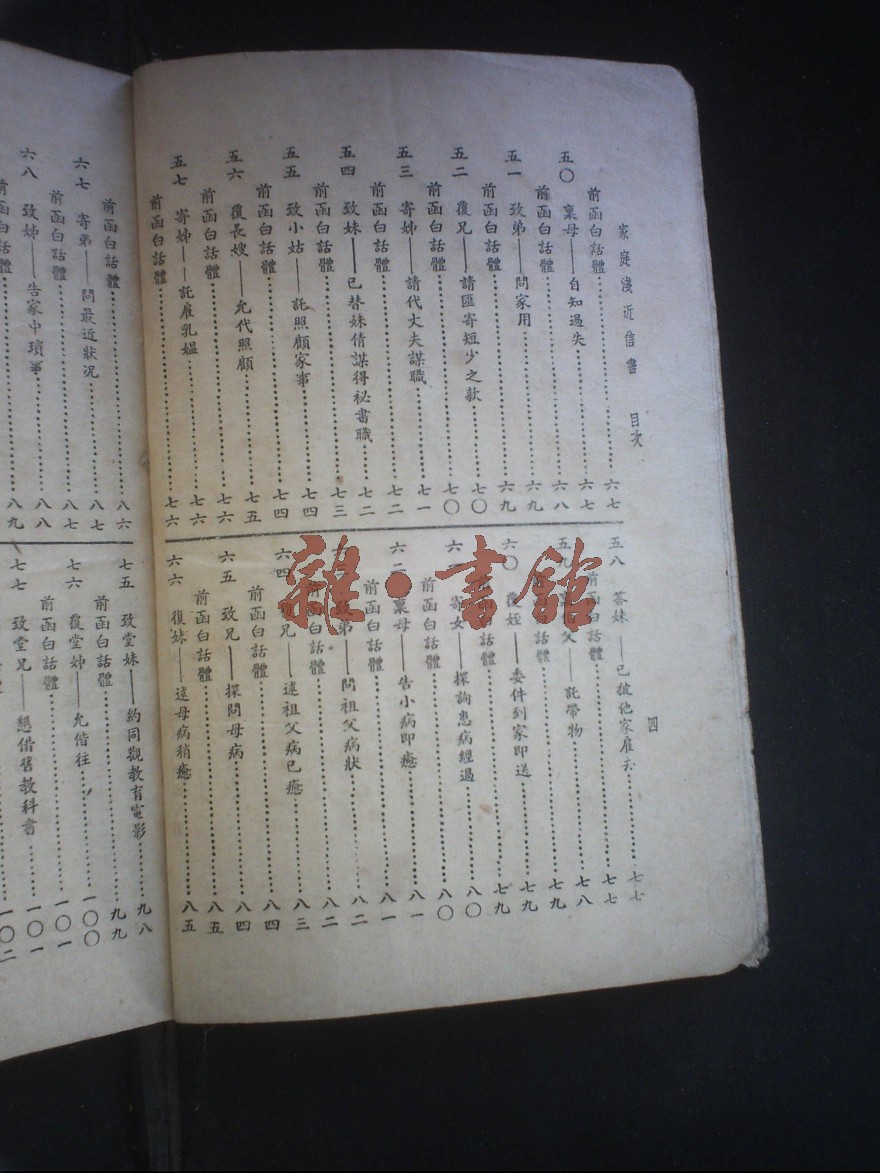 家庭淺近信書 目次 四
前函白話體……六七
五〇 稟母——自知過失……六七
前函白話體……六八
五一 致弟——問家用……六九
前函白話體……六九
五二 覆兄——請匯寄短少之款……七〇
前函白話體……七〇
五三 寄姊——請代丈夫謀職……七一
前函白話體……七二
五四 致妹——已替妹倩謀得祕書職……七二
前函白話體……七三
五五 致小姑——託照顧家事……七四
前函白話體……七四
五六 覆長嫂——允代照顧……七五
前函白話體……七六
五七 寄姊——託雇乳媼……七六
前函白話體……七六
五八 答妹——已被他家雇去……七七
前函白話體……七七
五九 父——託帶物……七八
白話體……七九
六〇 覆姪——委件到家即送……七九
前函白話體……七九
六 寄女——探詢患病經過……八〇
前函白話體……八〇
六二 稟母——告小病即癒……八一
前函白話體……八一
致弟——問祖父病狀……八二
前函白話體……八二
六四 兄——述祖父病已癒……八三
前函白話體……八四
六五 致兄——探問母病……八四
前函白話體……八五
六六 復妹——述母病稍癒……八五
前函白話體……八六
六七 寄弟——問最近狀況……八七
前函白話體……八七
六八 致姊——告家中瑣事……八八
前函白話體……八九
七五 致堂妹——約同觀教育電影……九八
前函白話體……九九
七六 覆堂姊——允偕往……一〇〇
前函白話體……一〇一
七七 致堂兄——懇借舊教科書……一〇一
一〇二
雜·書館